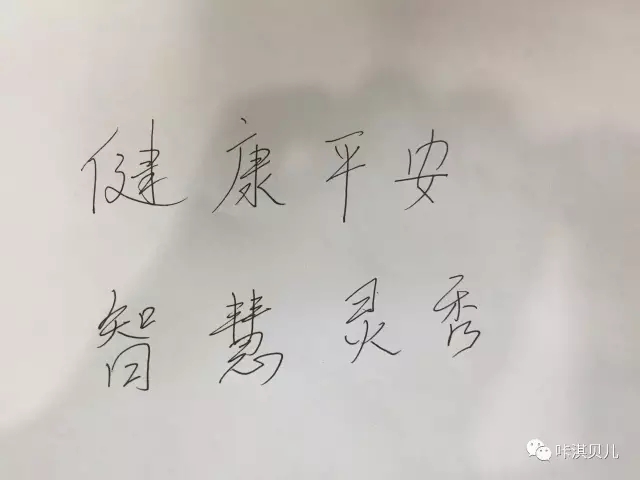 健康平安
智慧灵秀
咔淇贝儿